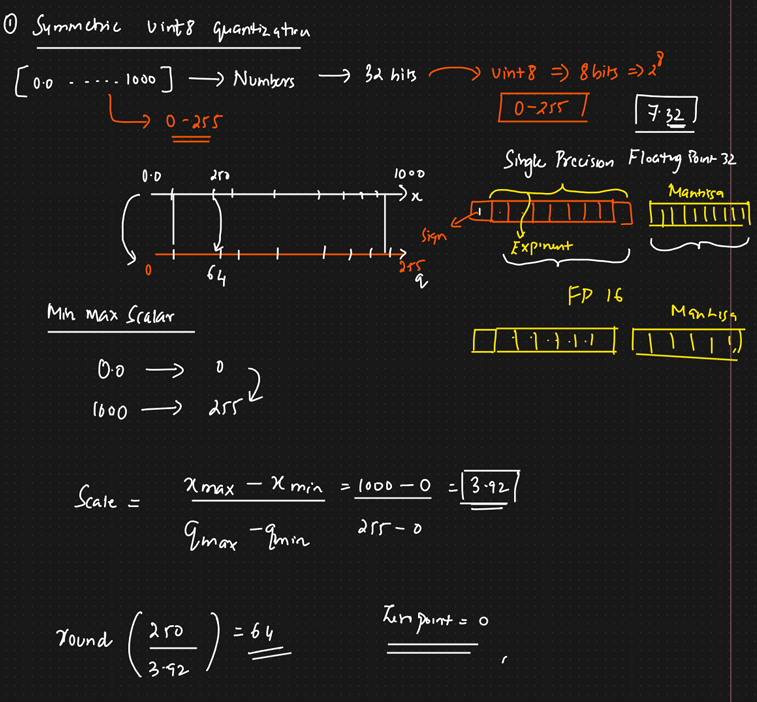 ① Symmetric uint8 quantization
[0.0 ..... 1000] → Numbers → 32 bits → uint8 ⇒ 8bits ⇒ 2^8
0-255
0-255
7.32
Single Precision Floating Point 32
0.0 250 1000
x
Mantissa
Sign
Exponent
0 64 255
q
FP 16
Mantissa
Min max Scalar
0.0 → 0
1000 → 255
Scale = (xmax - xmin) / (qmax - qmin) = (1000 - 0) / (255 - 0) = 3.92
round (250 / 3.92) = 64
Zero point = 0